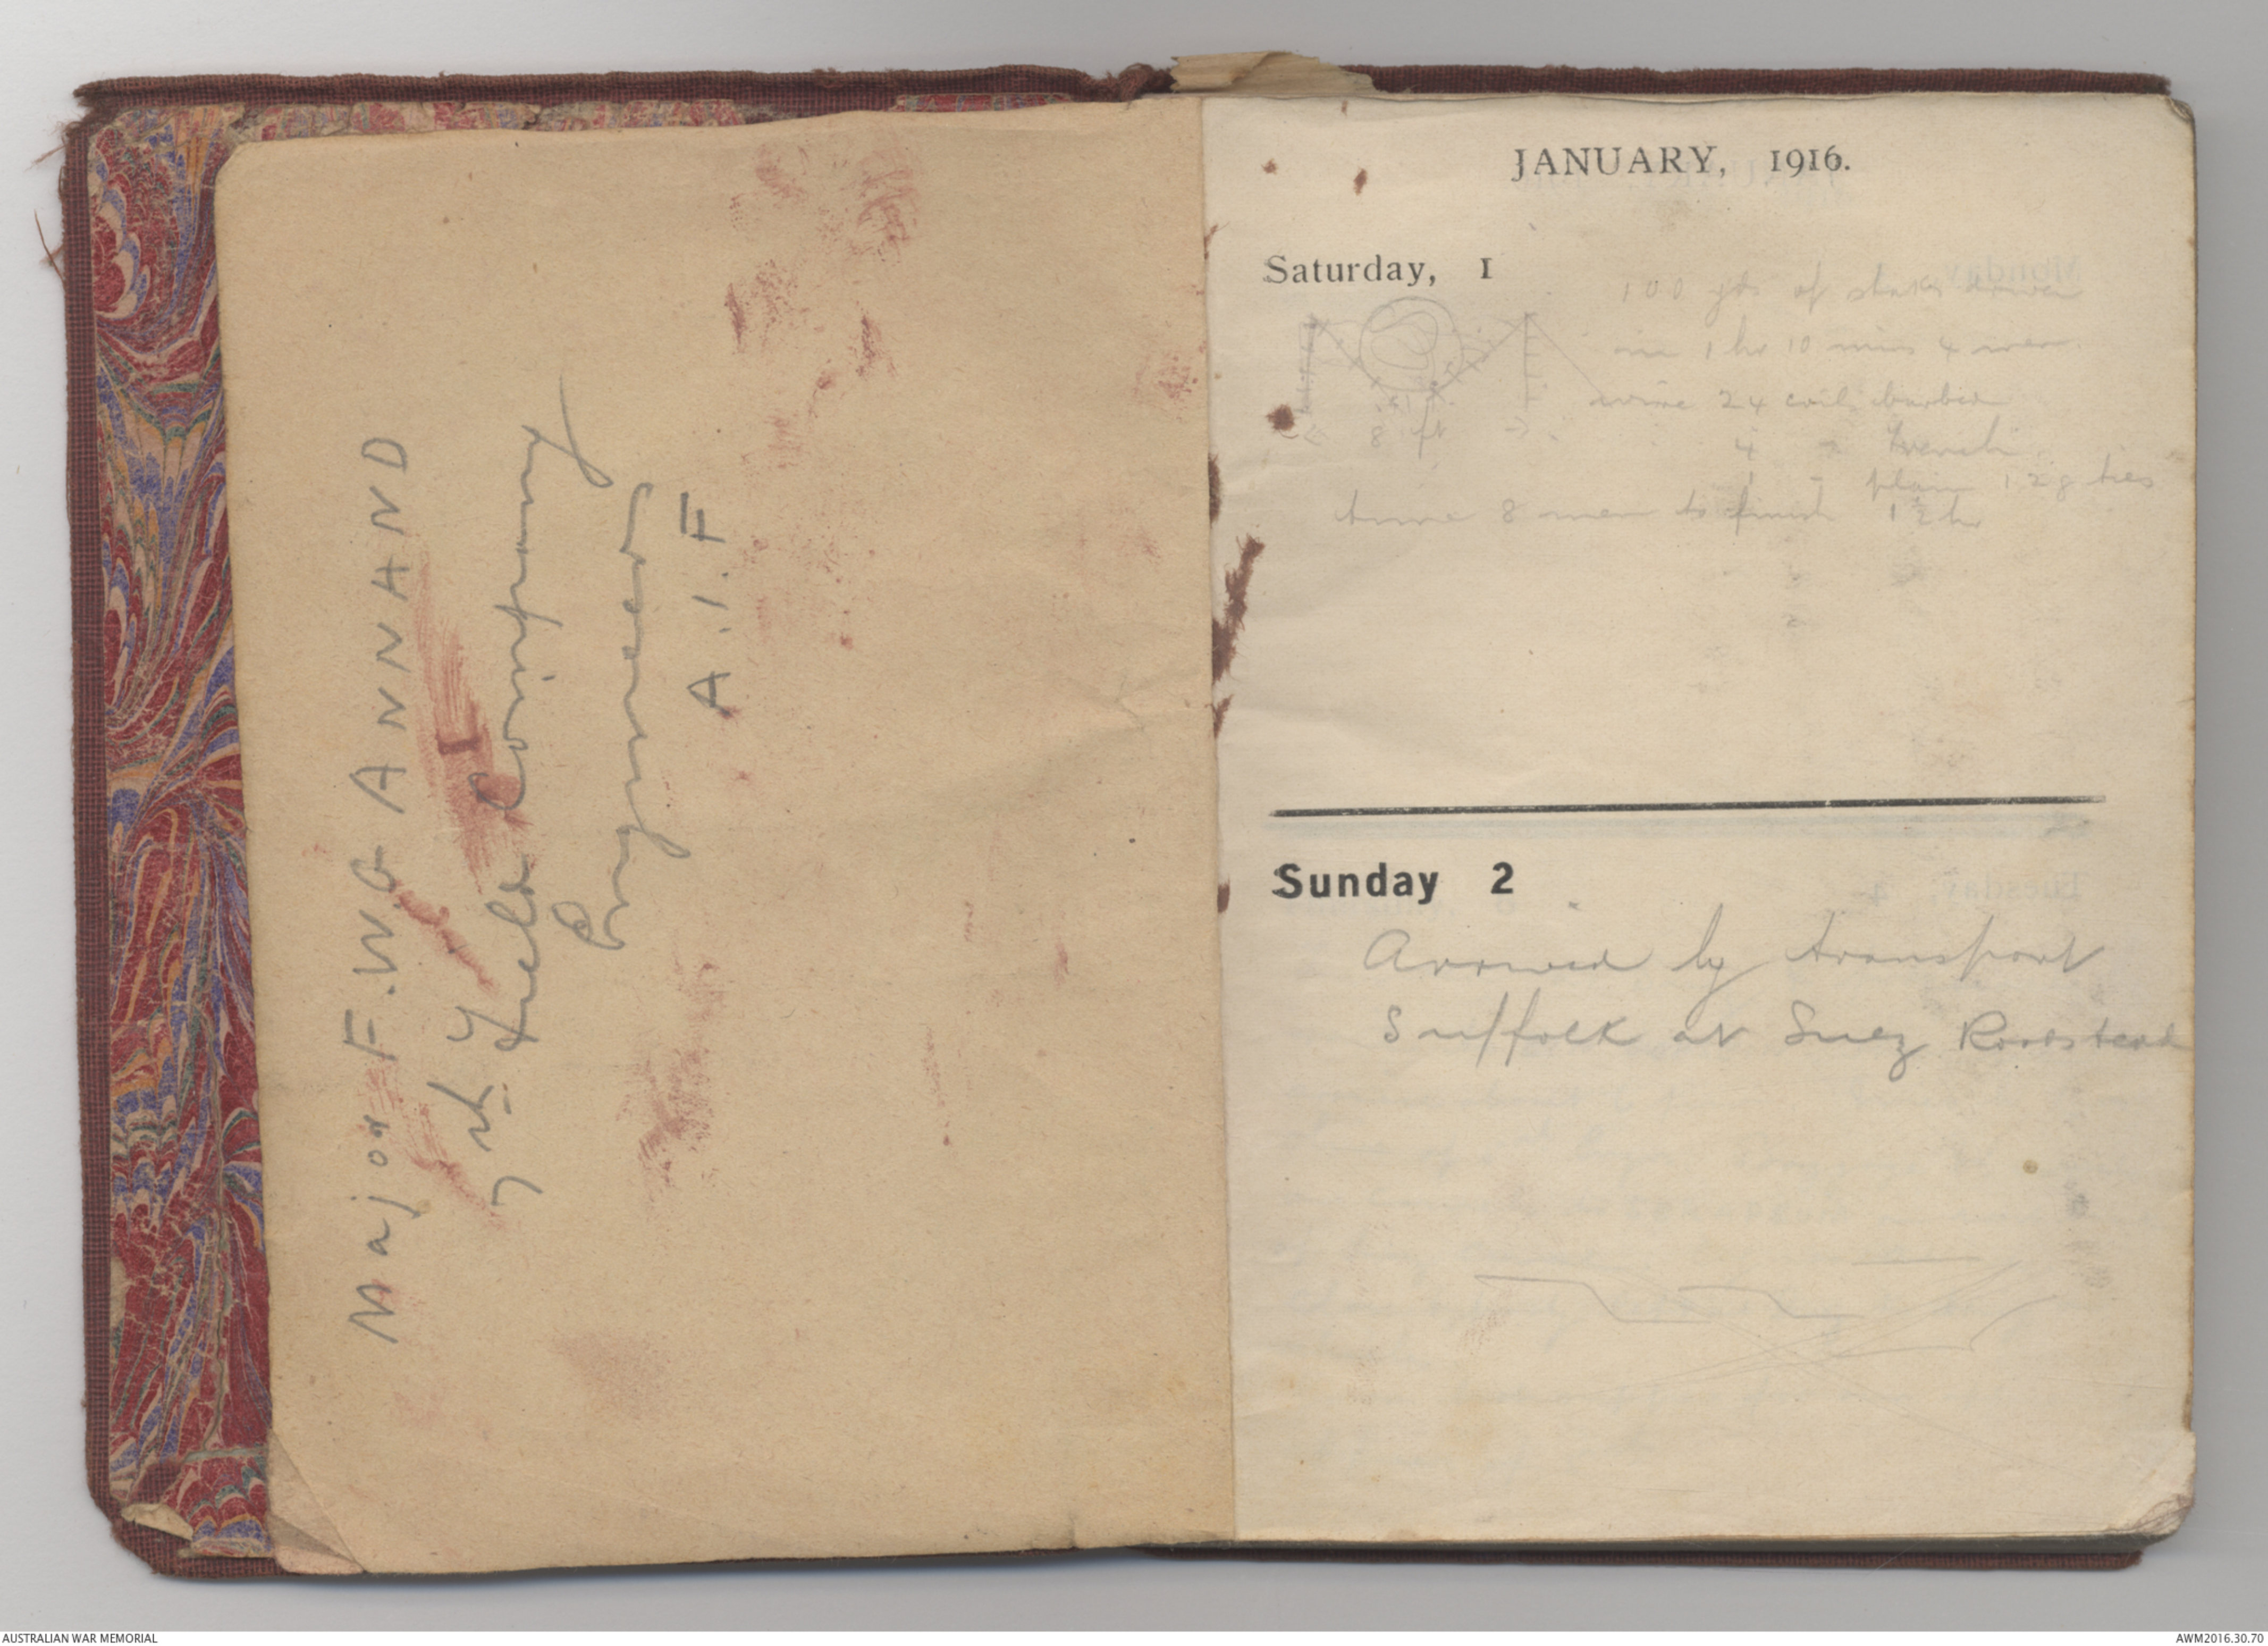 Major F.W.G ANNAND
7th Field Company
Engineers
A.I.F
JANUARY, 1916.
Saturday, 1
100 yds of stakes driven
in 1 hr 10 mins 4 men.
wire 24 coils barbed
4 " French
1 " plain 12g ties
8 ft
time 8 men to finish 1½ hr
Sunday 2
Arrived by transport
Suffolk at Suez Roadstead
AUSTRALIAN WAR MEMORIAL
AWM2016.30.70